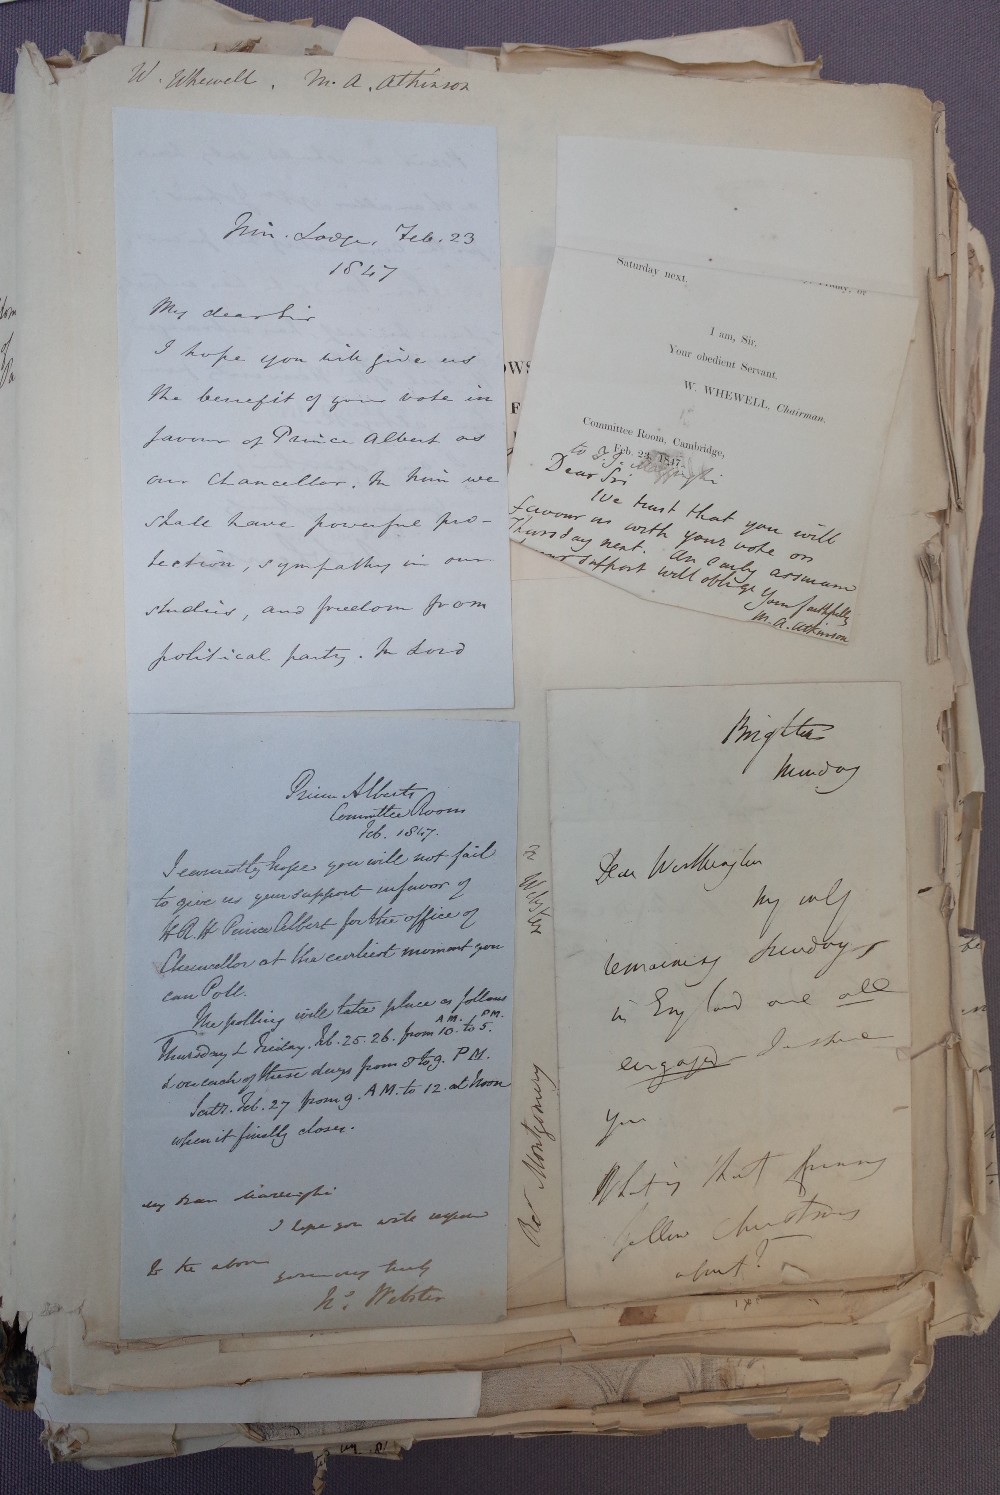 W. Whewell. M. A. Atkinson
Trin. Lodge, Feb. 23
1847
My dear Sir
I hope you will give us
the benefit of your vote in
favour of Prince Albert as
our Chancellor. In him we
shall have powerful pro-
tection, sympathy in our
studies, and freedom from
political party. In Lord
Saturday next.
I am, Sir,
Your obedient Servant,
W. WHEWELL, Chairman.
Committee Room, Cambridge,
Feb. 23, 1847.
to
Dear Sir
We trust that you will
favour us with your vote on
Thursday next. An early assurance
support will oblige
Yours faithfully
M. A. Atkinson
Prince Alberts
Committee Room
Feb. 1847.
I earnestly hope you will not fail
to give us your support in favor of
H.R.H Prince Albert for the office of
Chancellor at the earliest moment you
can Poll.
The polling will take place as follows
Thursday & Friday. Feb. 25. 26. from 10. A.M. to 5. P.M.
& on each of these days from 8 to 9. P.M.
Satr. Feb. 27 from 9. A.M. to 12. at Noon
when it finally closes.
My dear
I hope you will
to the above
yours very truly
Webster
Brighton
Sunday
Dear Worthington
My only
remaining Sundays
in England are all
engaged
you
What is that funny
fellow Christmas
about?
Revd Montgomery